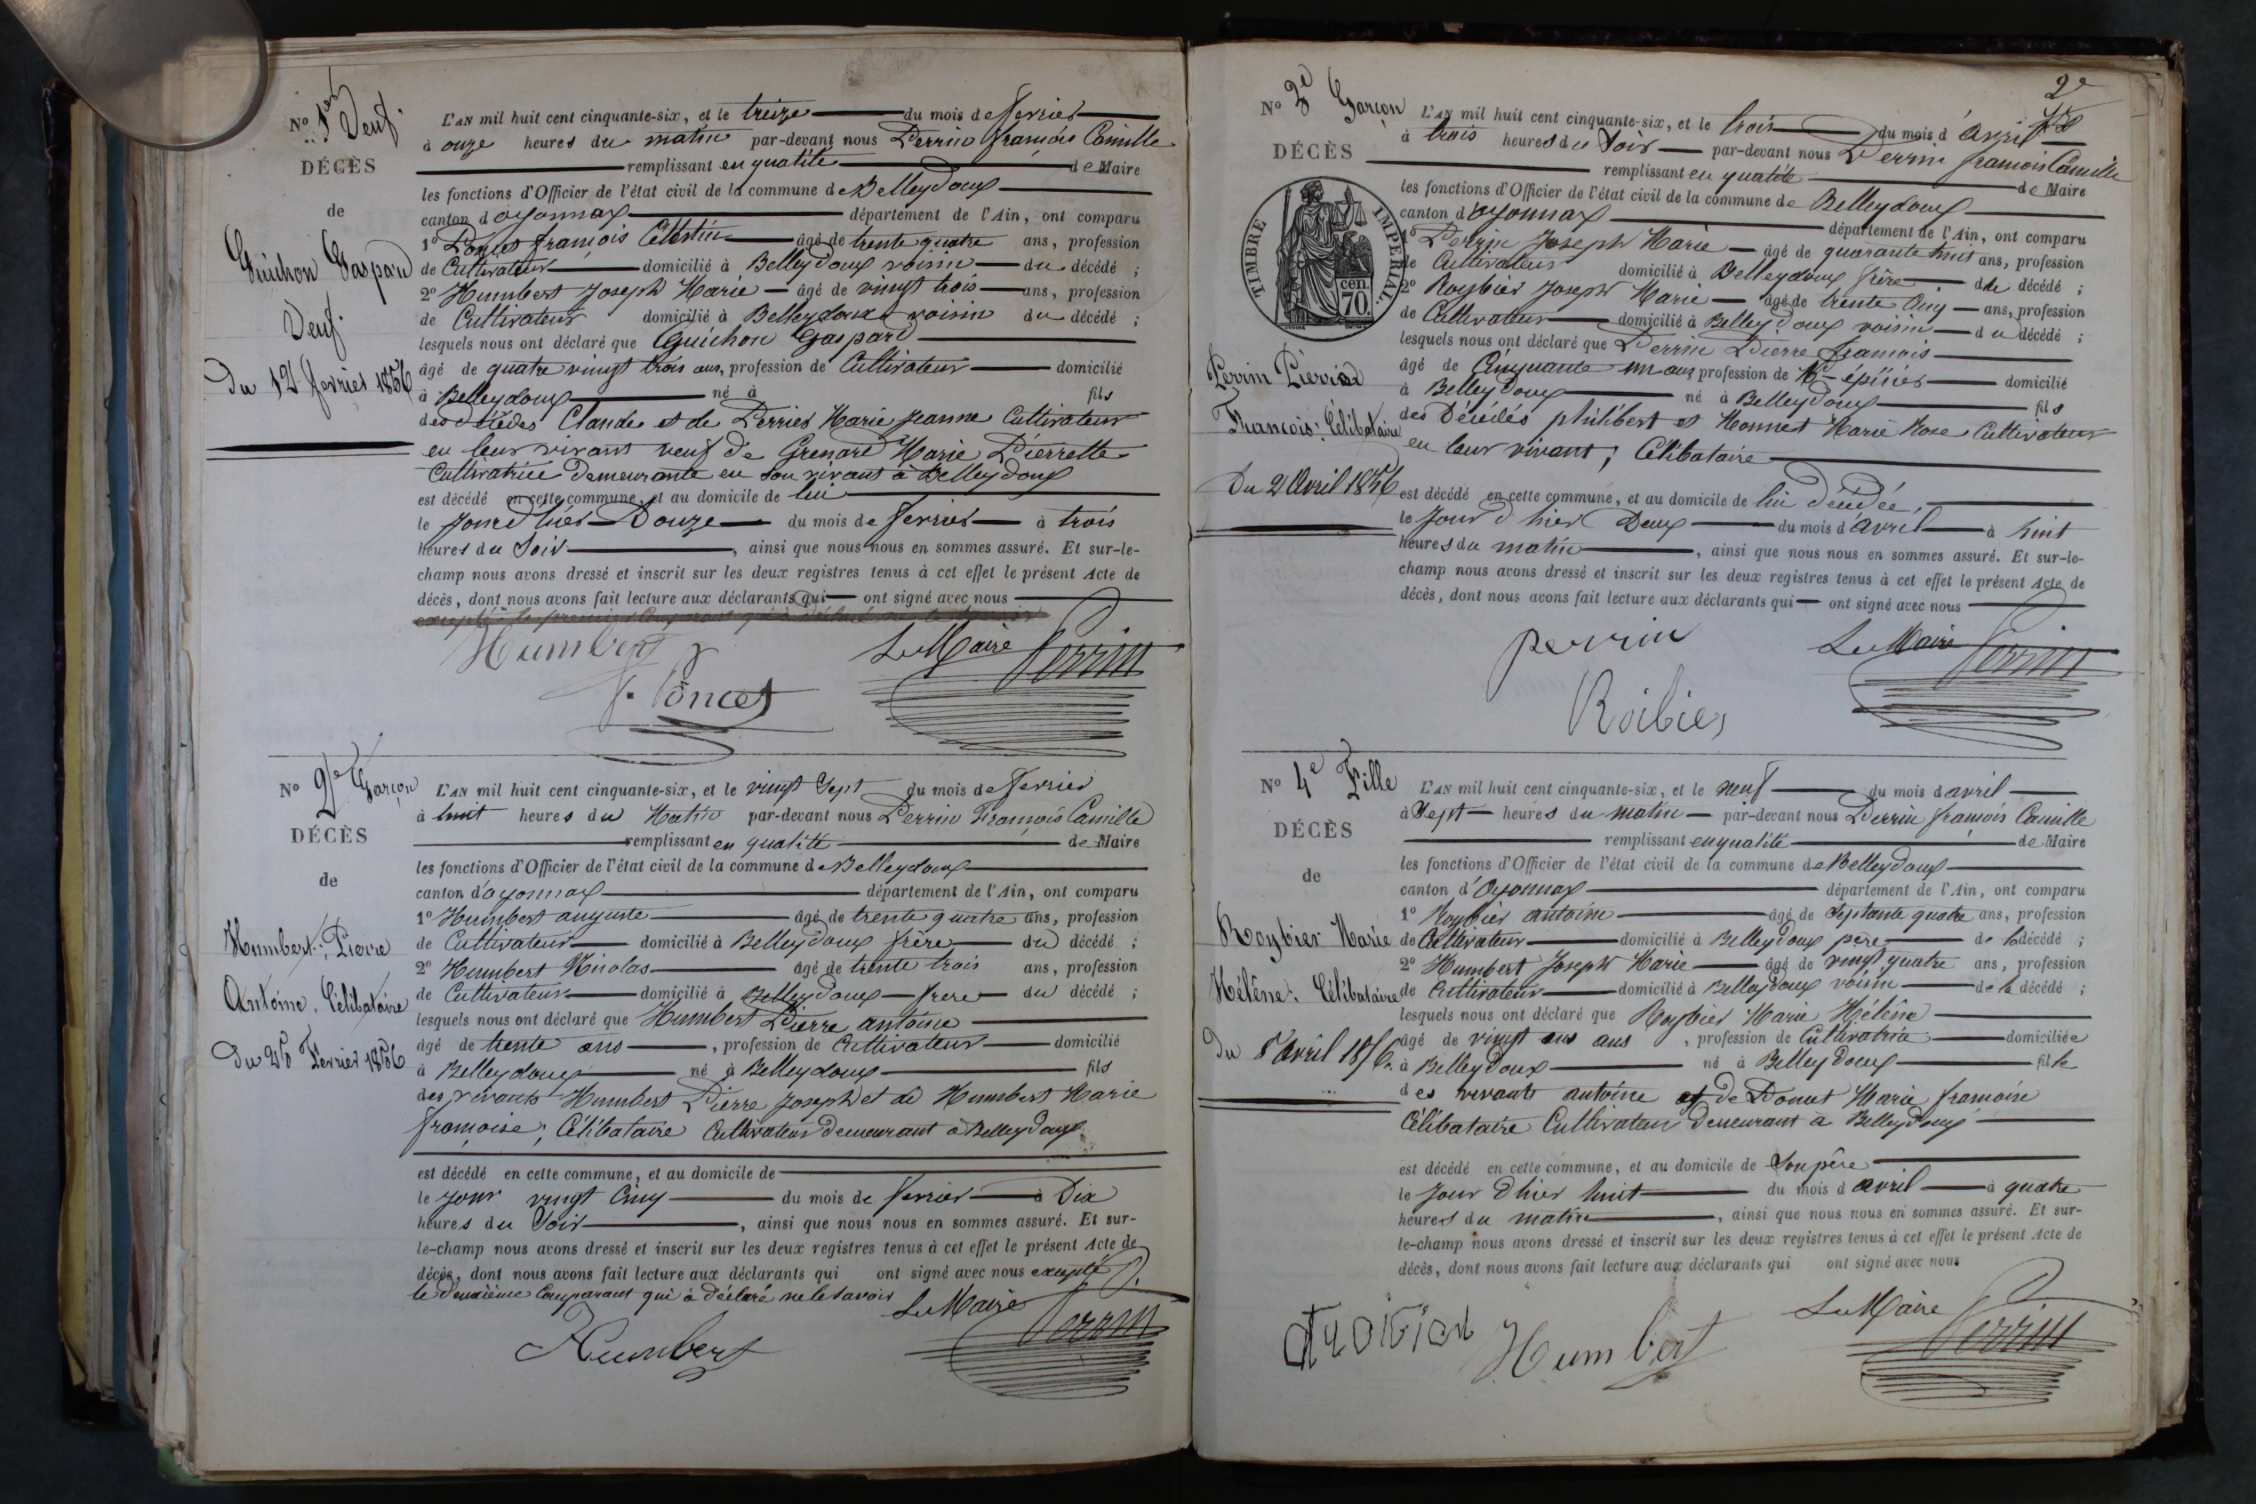 No 1er Veuf.
DÉCÈS
de
Guichon Gaspard
Veuf.
du 12 fevrier 1856
L'AN mil huit cent cinquante-six, et le treize du mois de fevrier
à onze heures du matin par-devant nous Perrin françois Camille
remplissant en qualité de Maire
les fonctions d'Officier de l'état civil de la commune de Belleydoux
canton d'oyonnax département de l'Ain, ont comparu
1o Poncet françois Célestin âgé de trente quatre ans, profession
de Cultivateur domicilié à Belleydoux voisin du décédé ;
2o Humbert Joseph Marie âgé de vingt trois ans, profession
de Cultivateur domicilié à Belleydoux voisin du décédé ;
lesquels nous ont déclaré que Guichon Gaspard
âgé de quatre vingt trois ans, profession de Cultivateur domicilié
à Belleydoux né à fils
des Claude et de Perrier Marie Jeanne Cultivateur
en leur vivant veuf de Grenard Marie Pierrette
Cultivatrice Demeurante en son vivant à Belleydoux
est décédé en cette commune, et au domicile de lui
le Jour d'hier Douze du mois de fevrier à trois
heures du Soir, ainsi que nous nous en sommes assuré. Et sur-le-
champ nous avons dressé et inscrit sur les deux registres tenus à cet effet le présent Acte de
décès, dont nous avons fait lecture aux déclarants qui ont signé avec nous
Humbert Le Maire Perrin
f. Poncet
No 2e Garçon
DÉCÈS
de
Humbert : Pierre
Antoine. Célibataire
Du 25 Fevrier 1856
L'AN mil huit cent cinquante-six, et le vingt Sept du mois de fevrier
à huit heures du Matin par-devant nous Perrin François Camille
remplissant en qualité de Maire
les fonctions d'Officier de l'état civil de la commune de Belleydoux
canton d'oyonnax département de l'Ain, ont comparu
1o Humbert auguste âgé de trente quatre ans, profession
de Cultivateur domicilié à Belleydoux frère du décédé ;
2o Humbert Nicolas âgé de trente trois ans, profession
de Cultivateur domicilié à Belleydoux frere du décédé ;
lesquels nous ont déclaré que Humbert Pierre antoine
âgé de trente ans, profession de Cultivateur domicilié
à Belleydoux né à Belleydoux fils
des vivants Humbert Pierre Joseph et de Humbert Marie
françoise ; Célibataire Cultivateur demeurant à Belleydoux
est décédé en cette commune, et au domicile de
le Jour vingt Cinq du mois de fevrier à Dix
heures du Soir, ainsi que nous nous en sommes assuré. Et sur-
le-champ nous avons dressé et inscrit sur les deux registres tenus à cet effet le présent Acte de
décès, dont nous avons fait lecture aux déclarants qui ont signé avec nous excepté
le deuxième Comparant qui à déclaré ne le savoir
Le Maire Perrin
Humbert
2e
No 3e Garçon
DÉCÈS
TIMBRE IMPÉRIAL
70 cen.
Perrin Pierre
Francois : Célibataire
Du 2 Avril 1856
L'AN mil huit cent cinquante-six, et le trois du mois d'Avril
à trois heures du Soir par-devant nous Perrin francois Camille
remplissant en qualité de Maire
les fonctions d'Officier de l'état civil de la commune de Belleydoux
canton d'oyonnax département de l'Ain, ont comparu
1o Perrin Joseph Marie âgé de quarante huit ans, profession
de Cultivateur domicilié à Belleydoux frère du décédé ;
2o Roybier Joseph Marie âgé de trente Cinq ans, profession
de Cultivateur domicilié à Belleydoux voisin du décédé ;
lesquels nous ont déclaré que Perrin Pierre francois
âgé de Cinquante un ans profession de épicier domicilié
à Belleydoux né à Belleydoux fils
des Décédés philibert et Monnet Marie Rose Cultivateur
en leur vivant ; Célibataire
est décédé en cette commune, et au domicile de lui décédé,
le Jour d'hier Deux du mois d'avril à huit
heures du matin, ainsi que nous nous en sommes assuré. Et sur-le-
champ nous avons dressé et inscrit sur les deux registres tenus à cet effet le présent Acte de
décès, dont nous avons fait lecture aux déclarants qui ont signé avec nous
perrin Le Maire Perrin
Roibier
No 4e Fille
DÉCÈS
de
Roybier Marie
Hélène : Célibataire
Du 8 avril 1856.
L'AN mil huit cent cinquante-six, et le neuf du mois d'avril
à Sept heures du matin par-devant nous Perrin françois Camille
remplissant en qualité de Maire
les fonctions d'Officier de l'état civil de la commune de Belleydoux
canton d'Oyonnax département de l'Ain, ont comparu
1o Roybier antoine âgé de septante quatre ans, profession
de Cultivateur domicilié à Belleydoux père de la décédé ;
2o Humbert Joseph Marie âgé de vingt quatre ans, profession
de Cultivateur domicilié à Belleydoux voisin de la décédé ;
lesquels nous ont déclaré que Roybier Marie Hélène
âgé de vingt ans, profession de Cultivatrice domiciliée
à Belleydoux né à Belleydoux fille
des vivants antoine et de Marie francoise
Célibataire Cultivateur Demeurant à Belleydoux
est décédé en cette commune, et au domicile de Son père
le Jour d'hier huit du mois d'avril à quatre
heures du matin, ainsi que nous nous en sommes assuré. Et sur-
le-champ nous avons dressé et inscrit sur les deux registres tenus à cet effet le présent Acte de
décès, dont nous avons fait lecture aux déclarants qui ont signé avec nous
Humbert Le Maire Perrin